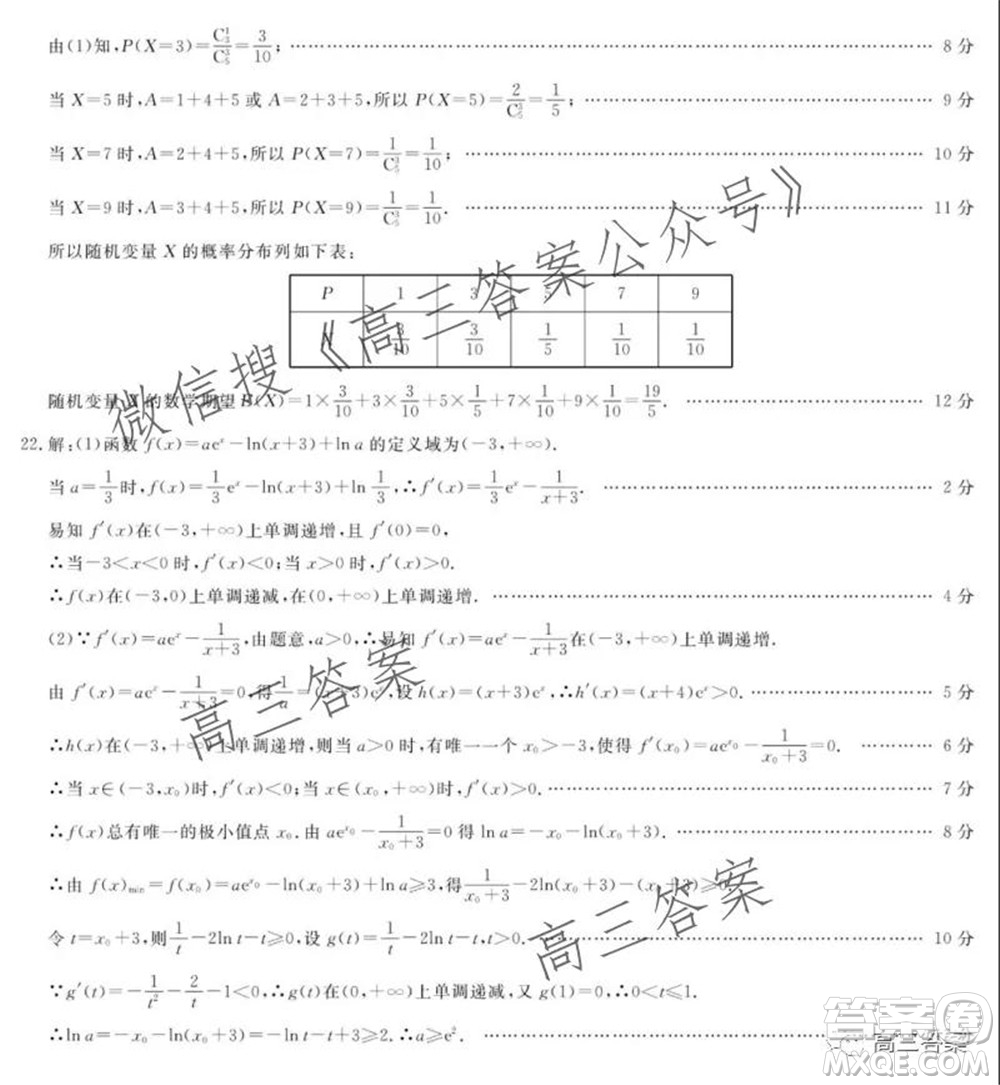 由(1)知,P(X=3)=C₃¹/C₅³=3/10; …… 8分
当X=5时,A=1+4+5或A=2+3+5,所以P(X=5)=2/C₅³=1/5; …… 9分
当X=7时,A=2+4+5,所以P(X=7)=1/C₅³=1/10; …… 10分
当X=9时,A=3+4+5,所以P(X=9)=1/C₅³=1/10. …… 11分
所以随机变量X的概率分布列如下表:
P 1 3 5 7 9
3/10 3/10 1/5 1/10 1/10
随机变量X的数学期望E(X)=1×3/10+3×3/10+5×1/5+7×1/10+9×1/10=19/5. …… 12分
22.解:(1)函数f(x)=aeˣ-ln(x+3)+ln a的定义域为(-3,+∞).
当a=1/3时,f(x)=1/3eˣ-ln(x+3)+ln 1/3,∴f′(x)=1/3eˣ-1/(x+3). …… 2分
易知f′(x)在(-3,+∞)上单调递增,且f′(0)=0,
∴当-3<x<0时,f′(x)<0;当x>0时,f′(x)>0.
∴f(x)在(-3,0)上单调递减,在(0,+∞)上单调递增. …… 4分
(2)∵f′(x)=aeˣ-1/(x+3),由题意,a>0,∴易知f′(x)=aeˣ-1/(x+3)在(-3,+∞)上单调递增.
由f′(x)=aeˣ-1/(x+3)=0,得1/a=(x+3)eˣ,设h(x)=(x+3)eˣ,∴h′(x)>0. …… 5分
∴h(x)在(-3,+∞)上单调递增,则当a>0时,有唯一一个x₀>-3,使得f′(x₀)=ae^x₀-1/(x₀+3)=0. …… 6分
∴当x∈(-3,x₀)时,f′(x)<0;当x∈(x₀,+∞)时,f′(x)>0. …… 7分
∴f(x)总有唯一的极小值点x₀.由ae^x₀-1/(x₀+3)=0得ln a=-x₀-ln(x₀+3). …… 8分
∴由f(x)min=f(x₀)=ae^x₀-ln(x₀+3)+ln a≥3,得1/(x₀+3)-2ln(x₀+3)-(x₀+3)≥0.
令t=x₀+3,则1/t-2ln t-t≥0,设g(t)=1/t-2ln t-t,t>0. …… 10分
∵g′(t)=-1/t²-2/t-1<0,∴g(t)在(0,+∞)上单调递减,又g(1)=0,∴0<t≤1.
∴ln a=-x₀-ln(x₀+3)≥2.∴a≥e². ……
微信搜《高三答案公众号》
高三答案
高三答案
答案圈
高三答案
MXQE.COM